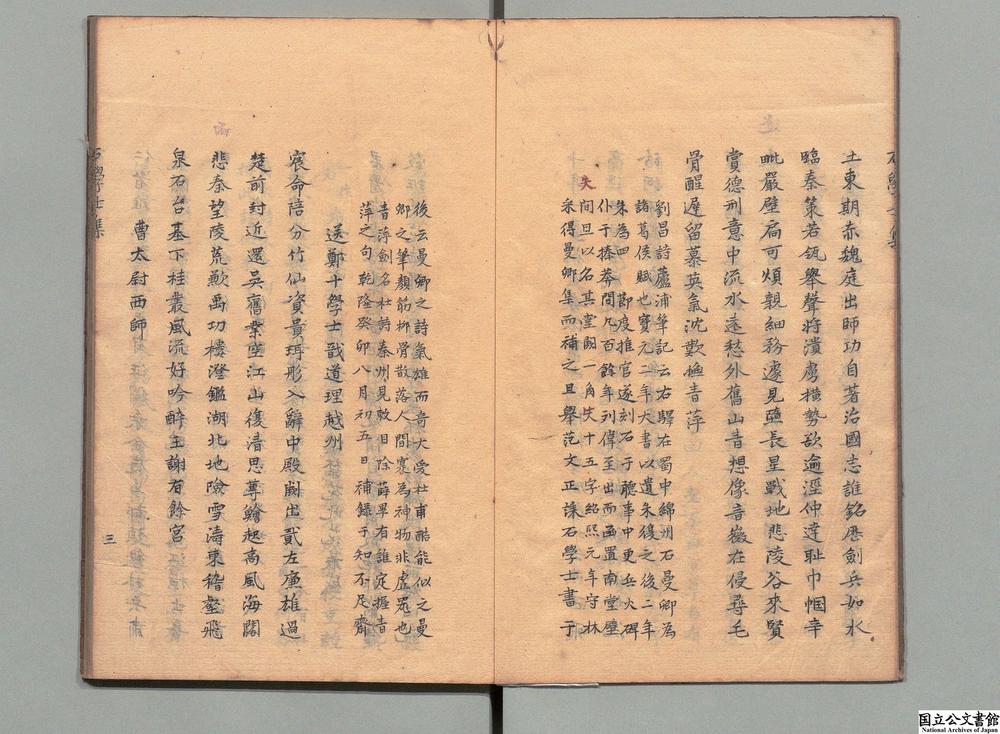 土東期赤魏庭出師功自著治國志誰銘歷劍兵如水
臨秦策若瓴舉聲將潰虜橫勢欲逾涇仲達恥巾幗辛
毗嚴壁扃可煩親細務遽見墮長星戰地悲陵谷來賢
賞德刑意中流水遠愁外舊山青想像音徽在侵尋毛
骨醒遲留慕英氣沈歎撫青萍
劉昌詩蘆浦筆記云右驛在蜀中綿州石曼卿為
諸葛侯賦也寶元二年大書以遺朱復之後二年
朱為四 節度推官遂刻石于聽事中更兵火碑
仆于榛莽間凡百餘年列偉至出而函置南堂壁
失
間且以名其堂闕一角失十五字紹熙元年守林
采得曼卿集而補之且舉范文正誄石學士書于
後云曼卿之詩氣雄而奇大愛杜甫酷能似之曼
卿之筆顏筋柳骨散落人間寔為神物非虛眾也
青萍劍名杜詩秦州見敕目除薛畢有誰定握青
萍之句乾隆癸卯八月初五日補錄于知不足齋
送鄭十學士戩道理越州
宸命陪分竹仙資貴珥形入辭中殿闢出貳左廉雄過
楚前封近還吳舊業空江山復清思蓴鱠起高風海闊
悲秦望陵荒歎禹功樓澄鑑湖北地險雪濤東稽壑飛
泉石台基下桂叢風流好吟醉主謝有餘宮
曹太尉西師
三
国立公文書館
National Archives of Japan